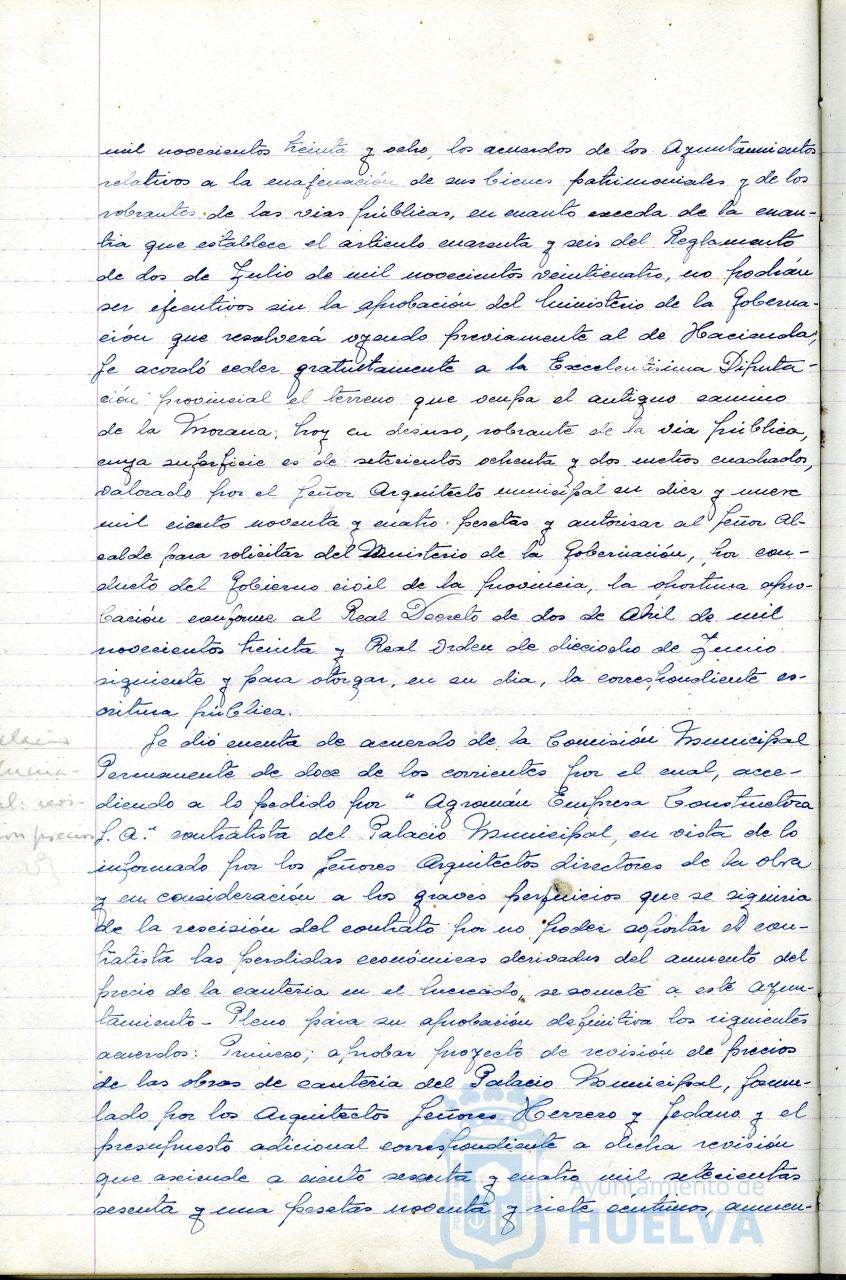 mil novecientos treinta y ocho, los acuerdos de los Ayuntamientos
relativos a la enajenación de sus bienes patrimoniales y de los
sobrantes de las vias públicas, en cuanto exceda de la cuan-
tia que establece el artículo cuarenta y seis del Reglamento
de dos de Julio de mil novecientos veinticuatro, no podrán
ser ejecutivos sin la aprobación del Ministerio de la Goberna-
ción que resolverá oyendo previamente al de Hacienda,
Se acordó ceder gratuitamente a la Excelentísima Diputa-
ción provincial el terreno que ocupa el antiguo camino
de la Morana, hoy en desuso, sobrante de la vía pública,
cuya superficie es de setecientos ochenta y dos metros cuadrados,
valorado por el Señor Arquitecto municipal en diez y nueve
mil ciento noventa y cuatro pesetas y autorisar al Señor Al-
calde para solicitar del Ministerio de la Gobernación, por con-
ducto del Gobierno civil de la provincia, la oportuna apro-
bación conforme al Real Decreto de dos de Abril de mil
novecientos treinta y Real orden de dieciocho de Junio
siguiente y para otorgar, en su dia, la correspondiente es-
critura pública.
Se dió cuenta de acuerdo de la Comisión Municipal
Permanente de doce de los corrientes por el cual, acce-
diendo a lo pedido por "Agromán Empresa Constructora
S.A." contratista del Palacio Municipal, en vista de lo
informado por los Señores Arquitectos directores de la obra
y en consideración a los graves perjuicios que se siguiria
de la rescisión del contrato por no poder soportar el con-
tratista las perdidas económicas derivadas del aumento del
precio de la canteria en el mercado, se somete a este Ayun-
tamiento-Pleno para su aprobación definitiva los siguientes
acuerdos: Primero; aprobar proyecto de revisión de precios
de las obras de cantería del Palacio Municipal, formu-
lado por los Arquitectos Señores Herrero y Sedano y el
presupuesto adicional correspondiente a dicha revisión
que asciende a ciento sesenta y cuatro mil setecientas
sesenta y una pesetas noventa y siete centimos, aumen-
Ayuntamiento de
HUELVA